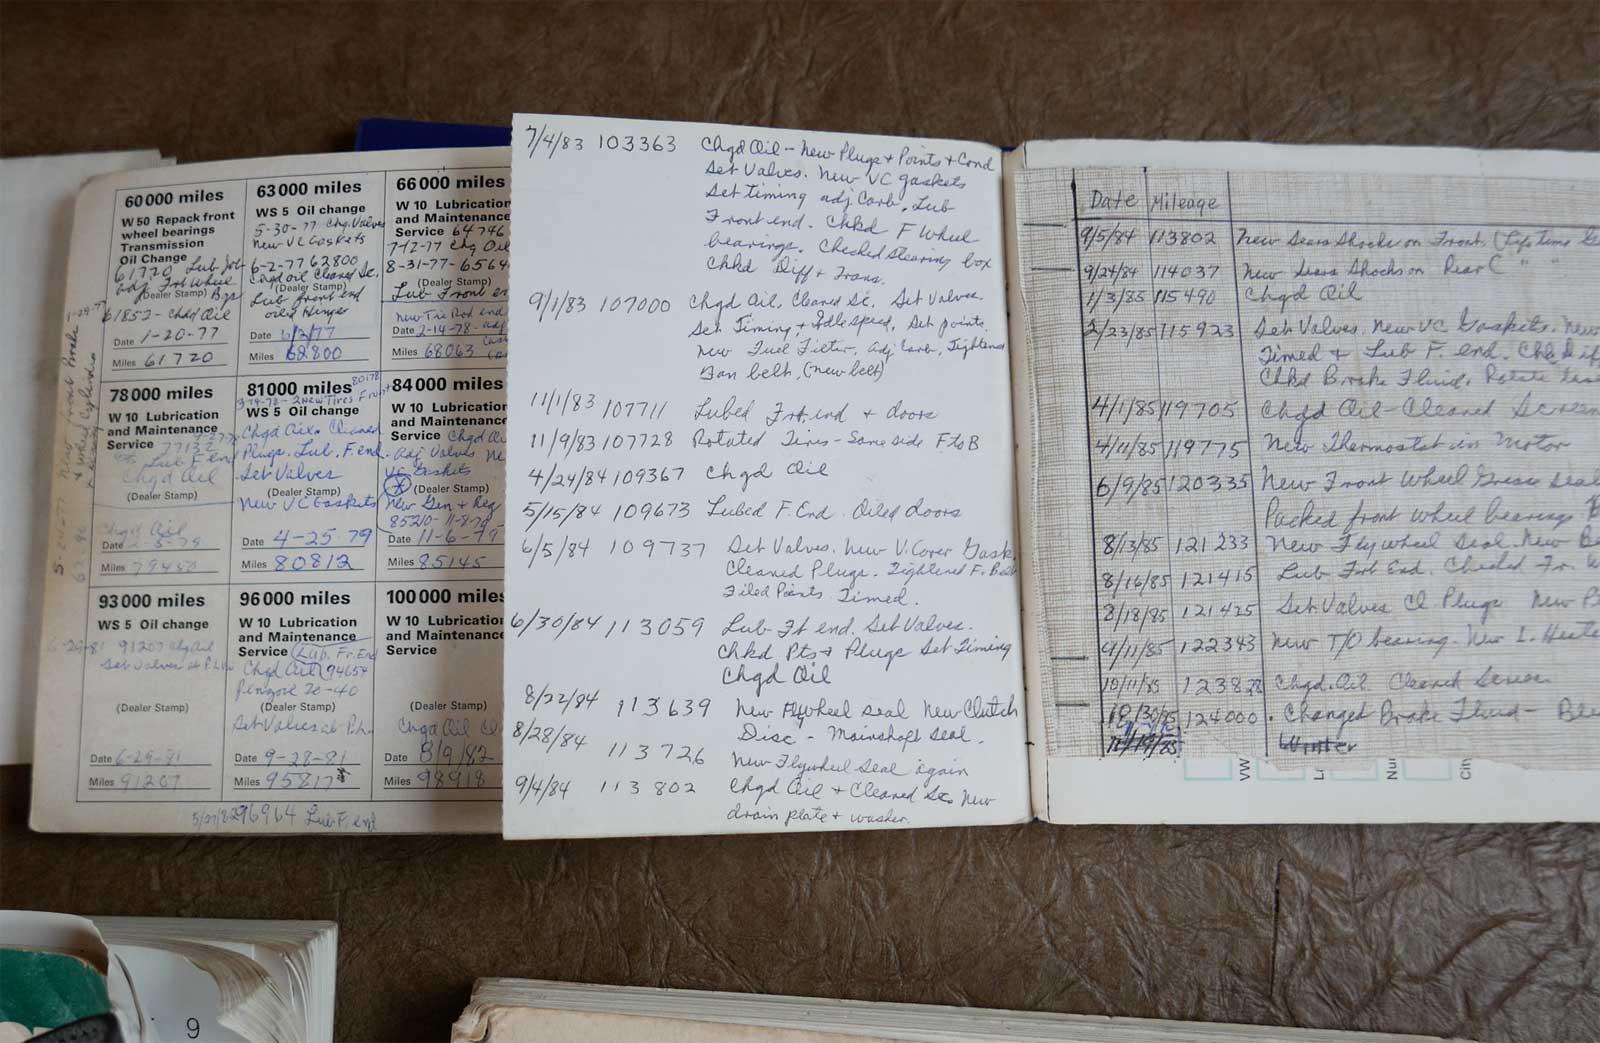 60 000 miles
W 50 Repack front
wheel bearings
Transmission
Oil Change
61720 Lub Job
adj Frt Wheel
(Dealer Stamp) Bgs
61852 - Chgd Oil
Date 1-20-77
Miles 61720
63 000 miles
WS 5 Oil change
5-30-77 Chg. Valves
New VC Gaskets
6-2-77 62800
Chgd oil Cleaned Sc.
(Dealer Stamp)
Lub front end
oiled Hinges
Date 6/2/77
Miles 62800
66 000 miles
W 10 Lubrication
and Maintenance
Service 64746
7-12-77 Chg Oil
8-31-77- 6564
(Dealer Stamp)
Lub Front en
New Tie Rod end
Date 2-14-78 - adj
Miles 68063
78 000 miles
W 10 Lubrication
and Maintenance
Service
77132
Lub F. end
Chgd Oil
(Dealer Stamp)
Chgd Oil
Date
Miles 79450
81 000 miles 80178
2 New Tires Front
WS 5 Oil change
Chgd Oil. Cleaned
Plugs. Lub. F. end.
Set Valves
(Dealer Stamp)
New VC Gaskets
Date 4-25-79
Miles 80812
84 000 miles
W 10 Lubrication
and Maintenance
Service Chgd Oi
Adj Valves Ne
VC Gaskets
(Dealer Stamp)
New Gen + Reg
85210-
Date 11-6-79
Miles 85145
93 000 miles
WS 5 Oil change
6-29-81 91207 Chg Oil
Set Valves at
(Dealer Stamp)
Date 6-29-81
Miles 91207
96 000 miles
W 10 Lubrication
and Maintenance
Service Lub. Fr. End
Chgd Oil 94654
Penzoil 20-40
(Dealer Stamp)
Set Valves at
Date 9-28-81
Miles 95817
100 000 miles
W 10 Lubrication
and Maintenance
Service
(Dealer Stamp)
Chgd Oil Cl
Date 8/9/82
Miles 98918
96964 Lub F. end
7/4/83 103363 Chgd Oil - New Plugs + Points + Cond
Set Valves. New VC gaskets
Set timing adj Carb. Lub
Front end. Chkd F Wheel
bearings. Checked Stearing box
Chkd Diff + Trans.
9/1/83 107000 Chgd Oil. Cleaned Sc. Set Valves.
Set Timing + Idle speed. Set points.
New Fuel Filter. Adj Carb. Tightened
Fan belt. (New belt)
11/1/83 107711 Lubed Frt. end + doors
11/9/83 107728 Rotated Tires - Same side F to B
4/24/84 109367 Chgd Oil
5/15/84 109673 Lubed F. End. Oiled doors
6/5/84 109737 Set Valves. New V. Cover Gask.
Cleaned Plugs. Tightened F. Belt
Filed Points. Timed.
6/30/84 113059 Lub Ft end. Set Valves.
Chkd Pts + Plugs Set Timing
Chgd Oil
8/22/84 113639 New Flywheel seal New Clutch
Disc - Mainshaft seal.
8/28/84 113726 New Flywheel Seal again
9/4/84 113802 Chgd Oil + Cleaned Sc. New
drain plate + washer.
Date Mileage
9/5/84 113802 New Sears Shocks on Front (Life Time G
9/24/84 114037 New Sears Shocks on Rear ( " "
1/3/85 115490 Chgd Oil
2/23/85 115923 Set Valves. New VC Gaskets. New
Timed + Lub F. end. Chkd Dif
Chkd Brake Fluid. Rotate
4/1/85 119705 Chgd Oil - Cleaned Screen
4/11/85 119775 New Thermostat in Motor
6/9/85 120335 New Front Wheel Grease Seal
Packed front wheel bearings
8/13/85 121233 New Flywheel Seal. New Be
8/16/85 121415 Lub Frt End. Checked Fr. W
8/18/85 121425 Set Valves Cl Plugs New P
9/11/85 122343 New T/O bearing - New
10/11/85 123828 Chgd. Oil Cleaned Screen
10/30/85 124000 . Changed Brake Fluid - Ble
Winter
VW
9